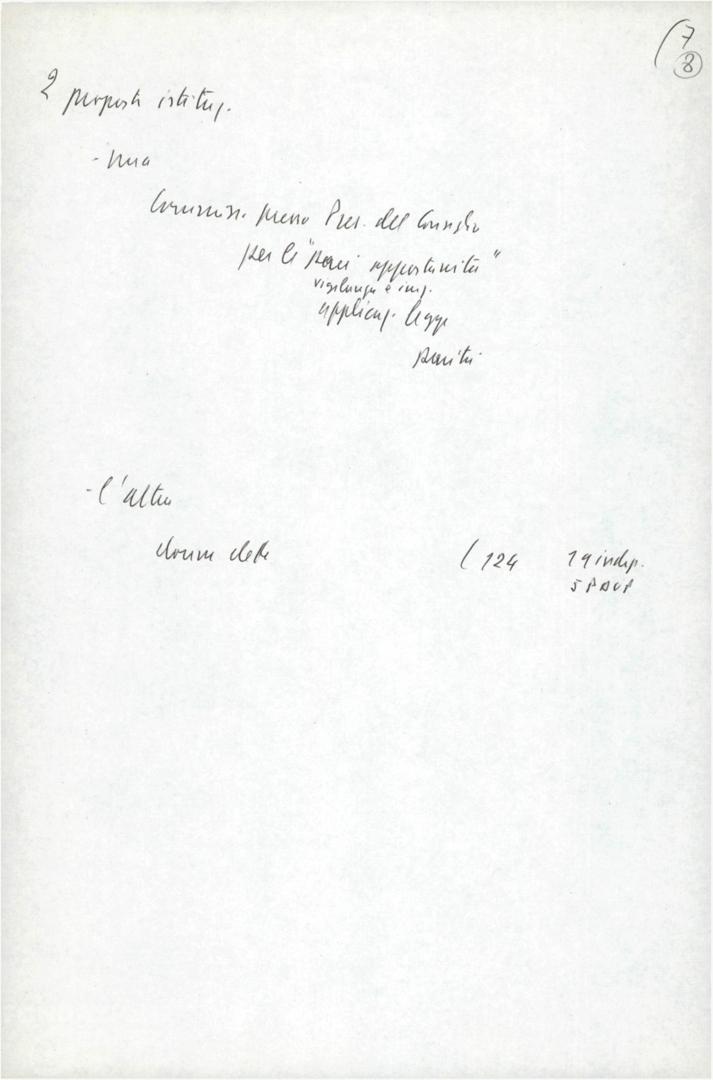 (7
8
2 proposte istituz.
- una
Commiss. presso Pres. del Consiglio
per le "pari opportunità"
vigilanza e
applicaz. legge
parità
- l'altra
donne elette (124 19 indip.
5 PDUP